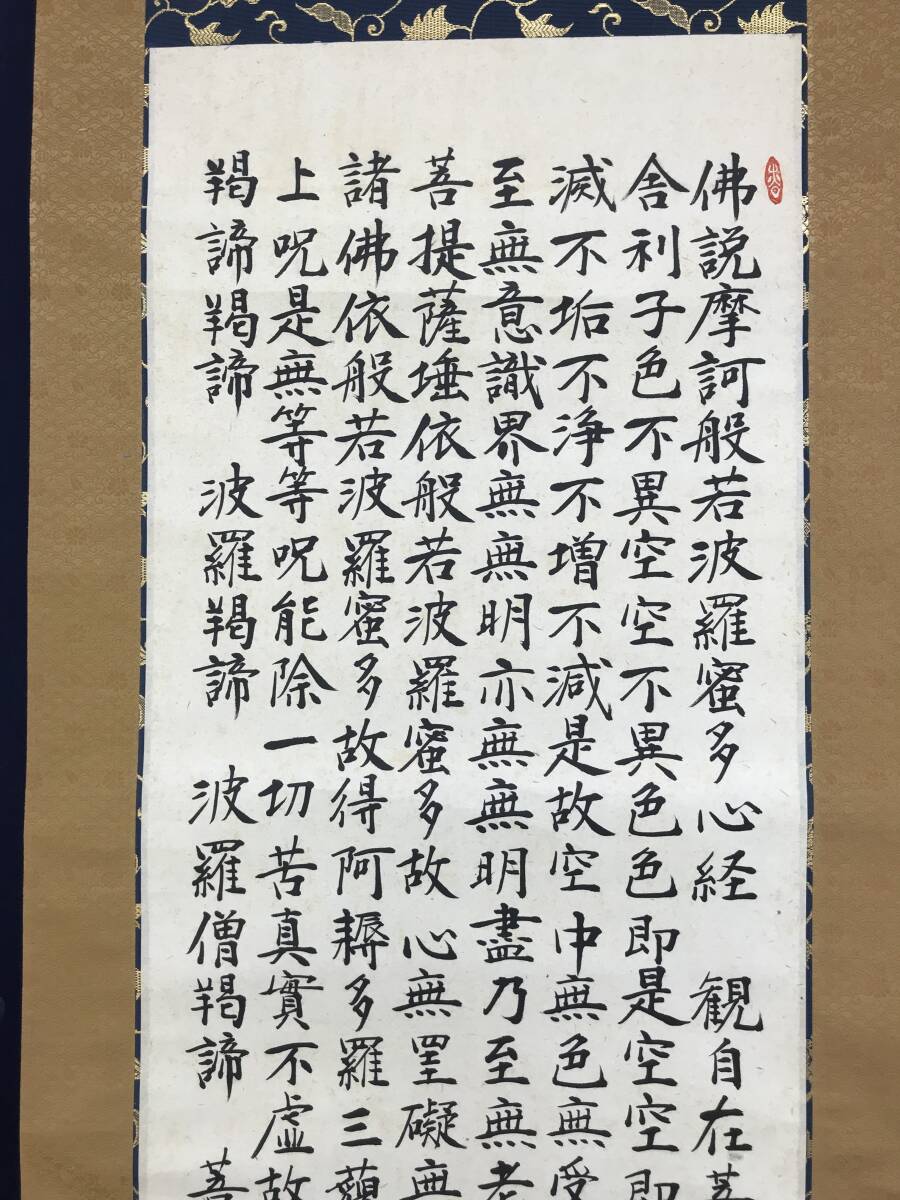 佛説摩訶般若波羅蜜多心経　観自在菩
舎利子色不異空空不異色色即是空空即
滅不垢不浄不増不減是故空中無色無受
至無意識界無無明亦無無明盡乃至無老
菩提薩埵依般若波羅蜜多故心無罣礙無
諸佛依般若波羅蜜多故得阿耨多羅三藐
上呪是無等等呪能除一切苦真實不虚故
羯諦羯諦　波羅羯諦　波羅僧羯諦　菩